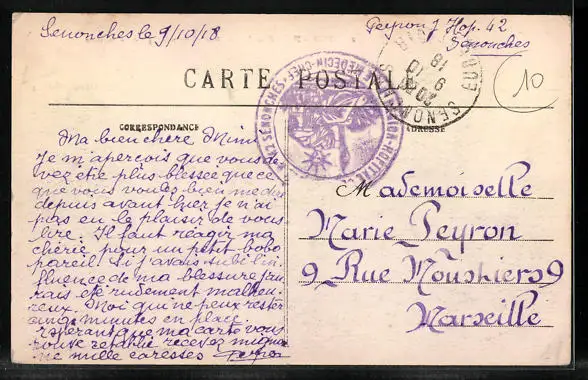 Senonches le 9/10/18
Peyron J Hop. 42
Senonches
CARTE POSTALE
SENONCHES
EURE
9 10 18
10
N°42 SENONCHES
MEDECIN-CHEF
CORRESPONDANCE
ADRESSE
Ma bien chère Mimi
Je m'aperçois que vous de
vez etre plus blessée que ce
que vous voulez bien me dire
depuis avant hier je n'ai
pas eu le plaisir de vous
lire. Il faut réagir ma
chérie pour un petit bobo
pareil. Si j'avais subi l'in
fluence de ma blessure j'au
rais été rudement malheu
reux. Moi qui ne peux rester
cinq minutes en place.
Espérant que ma carte vous
trouve rétablie recevez mignonne
mille caresses Peyron
Mademoiselle
Marie Peyron
9 Rue Moustiers 9
Marseille